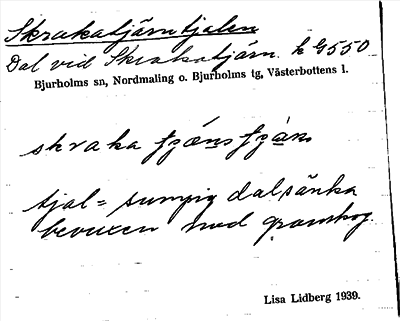 Skrakatjärntjalen
Dal vid Skrakatjärn. h G550
Bjurholms sn, Nordmaling o. Bjurholms tg, Västerbottens l.
skraka
tjal = sumpig dalsänka
bevuxen med granskog.
Lisa Lidberg 1939.